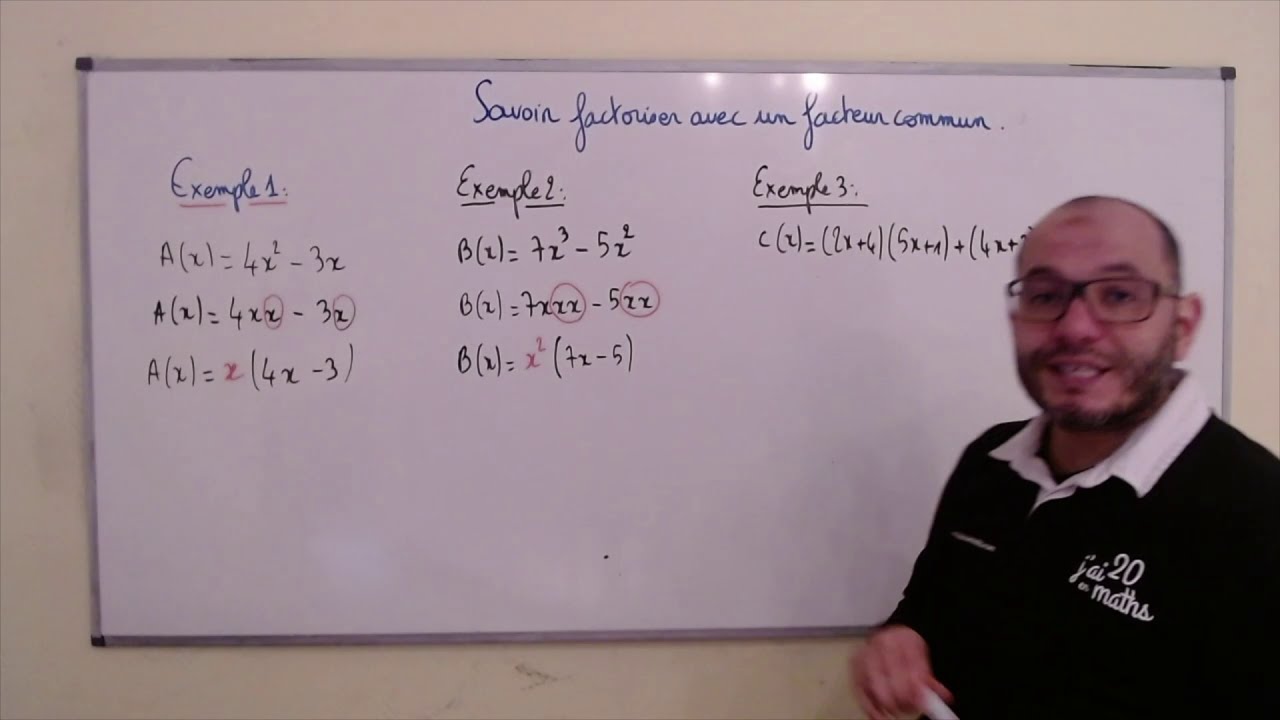 Savoir factoriser avec un facteur commun.
Exemple 1:
A(x) = 4x² - 3x
A(x) = 4xx - 3x
A(x) = x (4x - 3)
Exemple 2:
B(x) = 7x³ - 5x²
B(x) = 7xxx - 5xx
B(x) = x² (7x - 5)
Exemple 3:
C(x) = (2x+4)(5x+1) + (4x+
j'ai 20
en maths